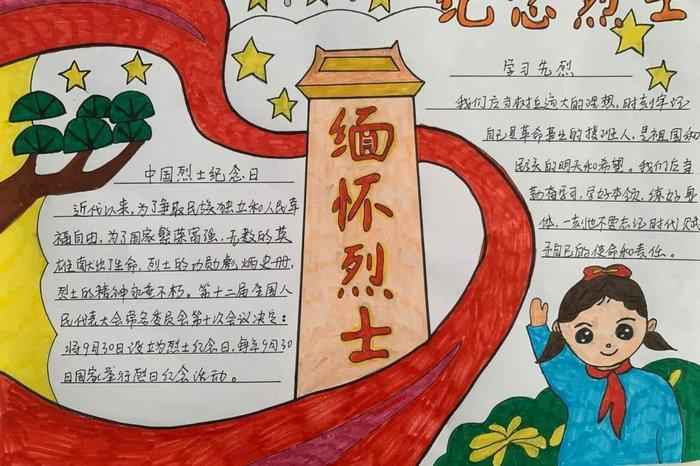 纪念烈士
缅怀烈士
中国烈士纪念日
近代以来，为了争取民族独立和人民幸
福自由，为了国家繁荣富强，无数的英
雄献出了生命，烈士的功勋彪炳史册，
烈士的精神永垂不朽。第十二届全国人
民代表大会常务委员会第十次会议决定：
将9月30日设立为烈士纪念日，每年9月30
日国家举行烈日纪念活动。
学习先烈
我们应当树立远大的理想，时刻牢记
自己是革命事业的接班人，是祖国和
民族的明天和希望。我们应当
勤奋学习，学好本领，练好身
体，一刻也不要忘记时代赋
予自己的使命和责任。